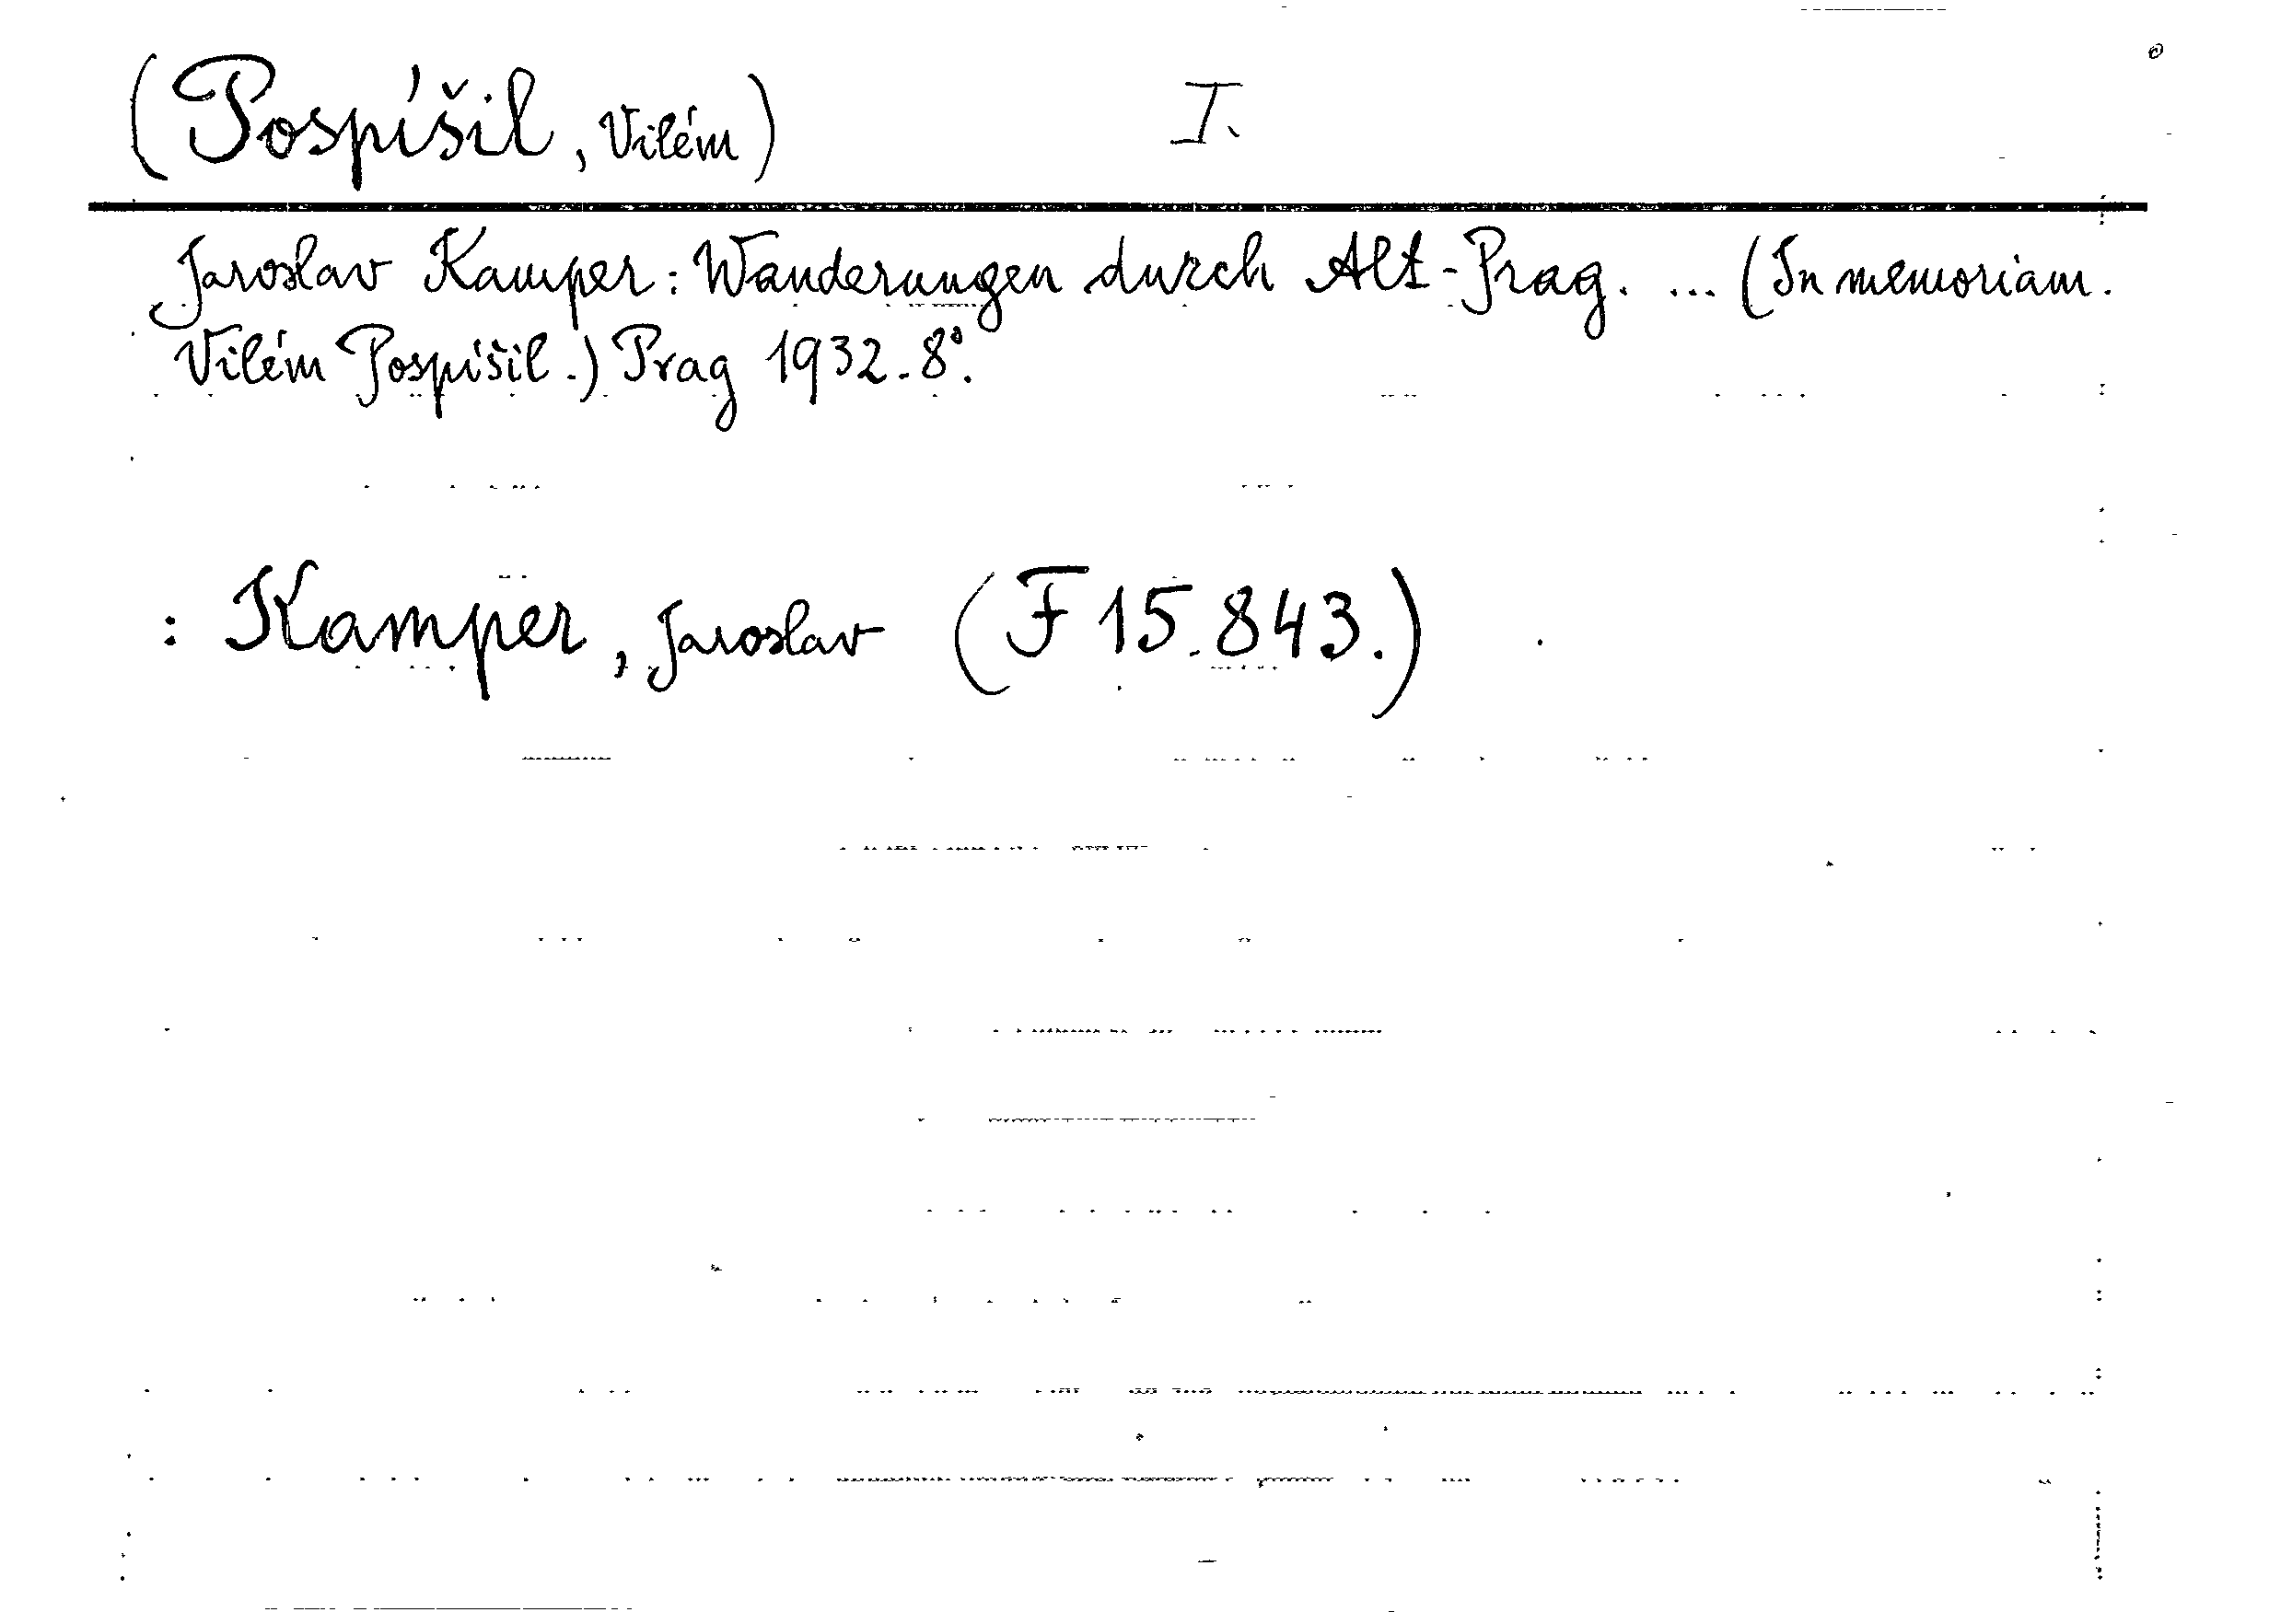 (Pospíšil, Vilém) I.
Jaroslav Kamper: Wanderungen durch Alt-Prag. ... (In memoriam.
Vilém Pospíšil.) Prag 1932. 8°.
: Kamper, Jaroslav (F 15.843.)